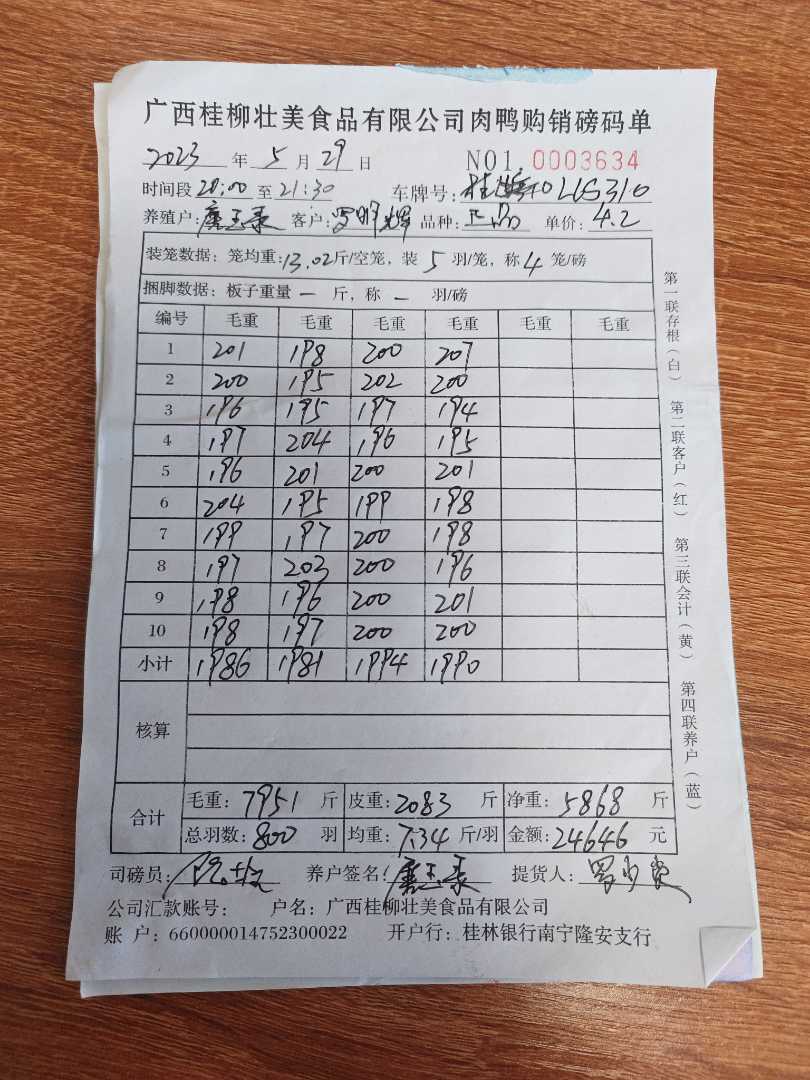 广西桂柳壮美食品有限公司肉鸭购销磅码单
2023 年 5 月 29 日 NO1. 0003634
时间段 20:00 至 21:30 车牌号: 桂 LG310
养殖户: 客户: 品种: 正品 单价: 4.2
装笼数据: 笼均重: 13.02 斤/空笼, 装 5 羽/笼, 称 4 笼/磅
捆脚数据: 板子重量 一 斤, 称 一 羽/磅
编号 毛重 毛重 毛重 毛重 毛重 毛重
1 201 198 200 207
2 200 195 202 200
3 196 195 197 194
4 197 204 196 195
5 196 201 200 201
6 204 195 199 198
7 199 197 200 198
8 197 203 200 196
9 198 196 200 201
10 198 197 200 200
小计 1986 1981 1994 1990
核算
合计
毛重: 7951 斤 皮重: 2083 斤 净重: 5868 斤
总羽数: 800 羽 均重: 7.34 斤/羽 金额: 24646 元
司磅员: 养户签名: 提货人:
公司汇款账号: 户名: 广西桂柳壮美食品有限公司
账 户: 660000014752300022 开户行: 桂林银行南宁隆安支行
第一联存根(白) 第二联客户(红) 第三联会计(黄) 第四联养户(蓝)